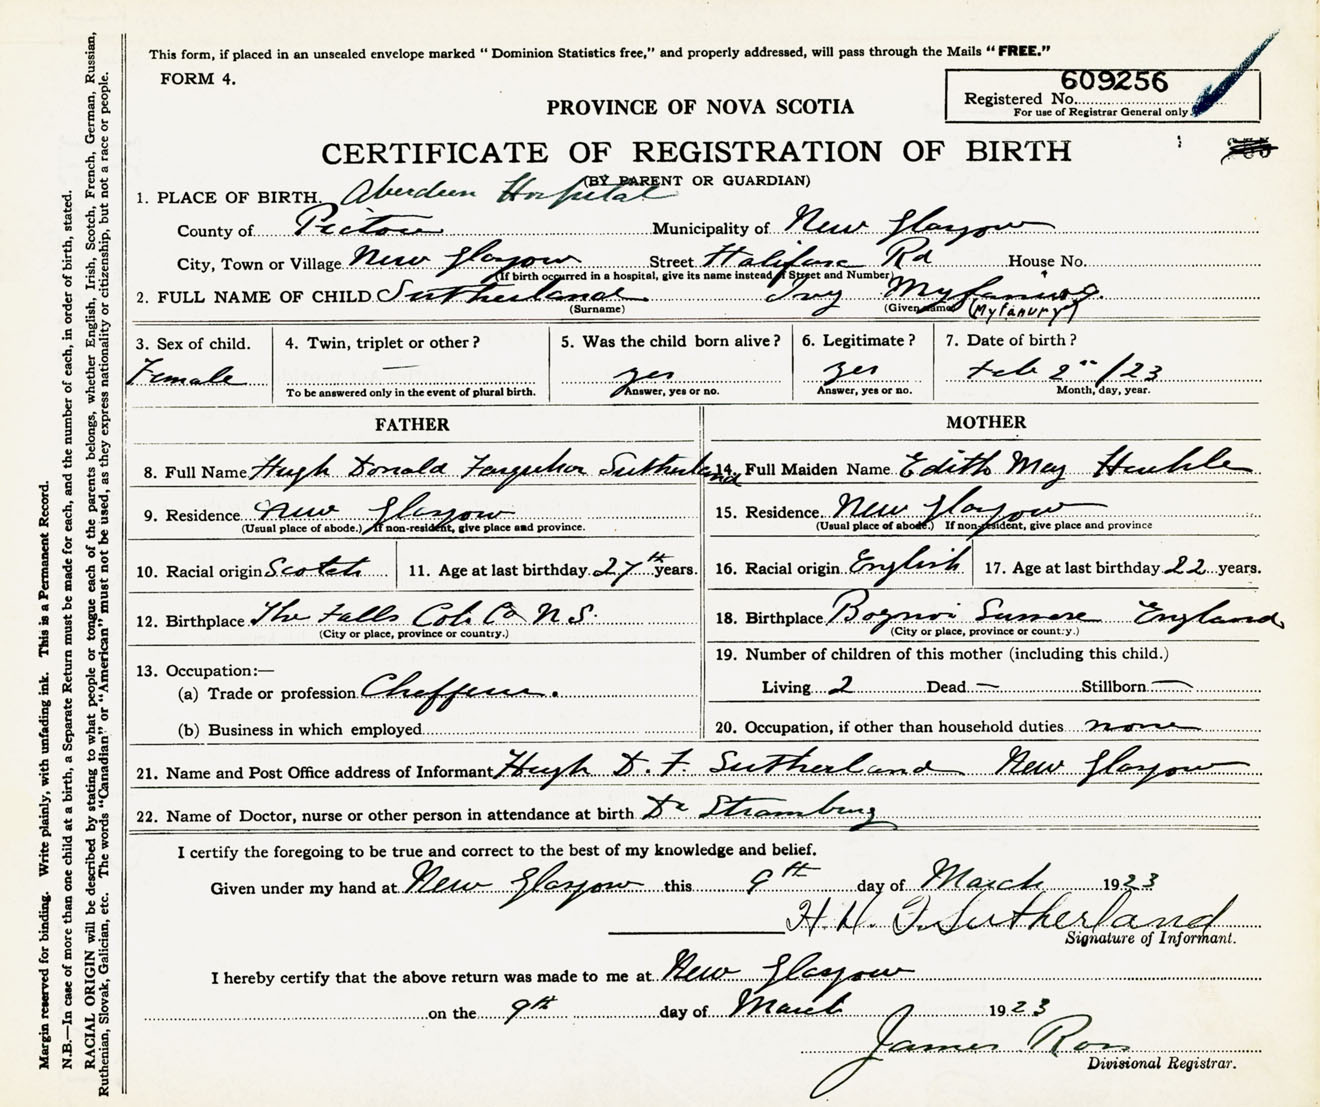 This form, if placed in an unsealed envelope marked " Dominion Statistics free," and properly addressed, will pass through the Mails " FREE."
FORM 4.
609256
Registered No.
For use of Registrar General only
PROVINCE OF NOVA SCOTIA
CERTIFICATE OF REGISTRATION OF BIRTH
(BY PARENT OR GUARDIAN)
1. PLACE OF BIRTH. Aberdeen Hospital
County of Pictou Municipality of New Glasgow
City, Town or Village New Glasgow Street Halifax Rd House No.
(If birth occurred in a hospital, give its name instead of Street and Number)
2. FULL NAME OF CHILD Sutherland Ivy Myfanwy.
(Surname) (Given name) (Myfanwy)
3. Sex of child. 4. Twin, triplet or other? 5. Was the child born alive? 6. Legitimate? 7. Date of birth?
Female — yes yes Feb 2nd /23
To be answered only in the event of plural birth. Answer, yes or no. Answer, yes or no. Month, day, year.
FATHER MOTHER
8. Full Name Hugh Donald Ferguson Sutherland 14. Full Maiden Name Edith May
9. Residence New Glasgow 15. Residence New Glasgow
(Usual place of abode.) If non-resident, give place and province. (Usual place of abode.) If non-resident, give place and province
10. Racial origin Scotch 11. Age at last birthday 27th years. 16. Racial origin English 17. Age at last birthday 22 years.
12. Birthplace The Falls Col. Co N.S. 18. Birthplace Bognor England
(City or place, province or country.) (City or place, province or country.)
13. Occupation:—
(a) Trade or profession Chaffeur.
(b) Business in which employed
19. Number of children of this mother (including this child.)
Living 2 Dead — Stillborn —
20. Occupation, if other than household duties none
21. Name and Post Office address of Informant Hugh D. F. Sutherland New Glasgow
22. Name of Doctor, nurse or other person in attendance at birth Dr
I certify the foregoing to be true and correct to the best of my knowledge and belief.
Given under my hand at New Glasgow this 9th day of March 1923
H. D. F. Sutherland
Signature of Informant.
I hereby certify that the above return was made to me at New Glasgow
on the 9th day of March 1923
James Ross
Divisional Registrar.
Margin reserved for binding. Write plainly, with unfading ink. This is a Permanent Record.
N.B.—In case of more than one child at a birth, a Separate Return must be made for each, and the number of each, in order of birth, stated.
RACIAL ORIGIN will be described by stating to what people or tongue each of the parents belongs, whether English, Irish, Scotch, French, German, Russian,
Ruthenian, Slovak, Galician, etc. The words "Canadian" or "American" must not be used, as they express nationality or citizenship, but not a race or people.